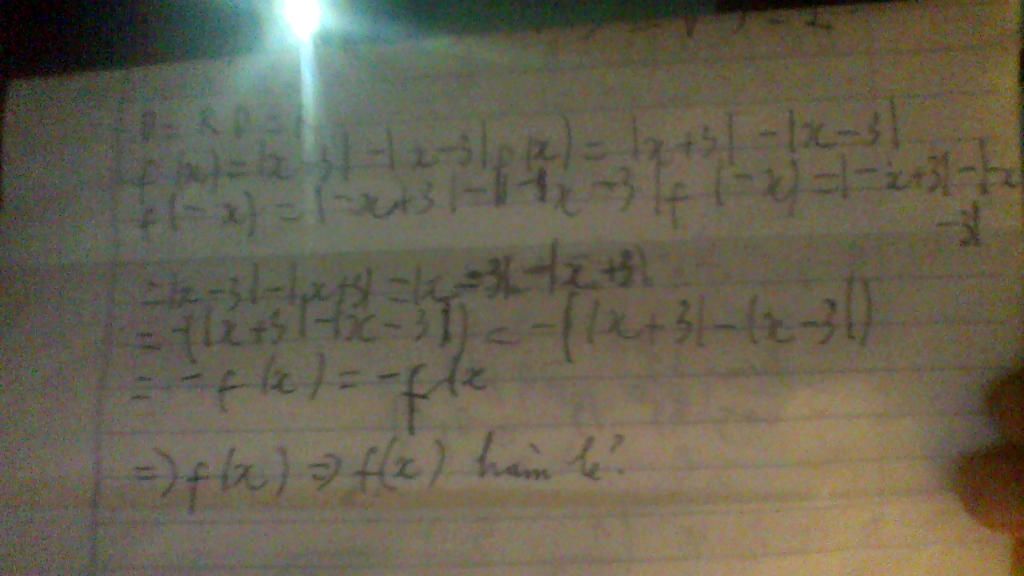 D = R D =
f(x) = |x 3| - |x - 3| f(x) = |x+3| - |x - 3|
f(-x) = |-x+3| - |-x - 3| f(-x) = |-x+3| - |-x
-3|
= |x - 3| - |x+3| = |x - 3| - |x+3|
= -(|x+3| - |x - 3|) = -(|x+3| - |x - 3|)
= -f(x) = -f(x
=> f(x) => f(x) hàm lẻ.